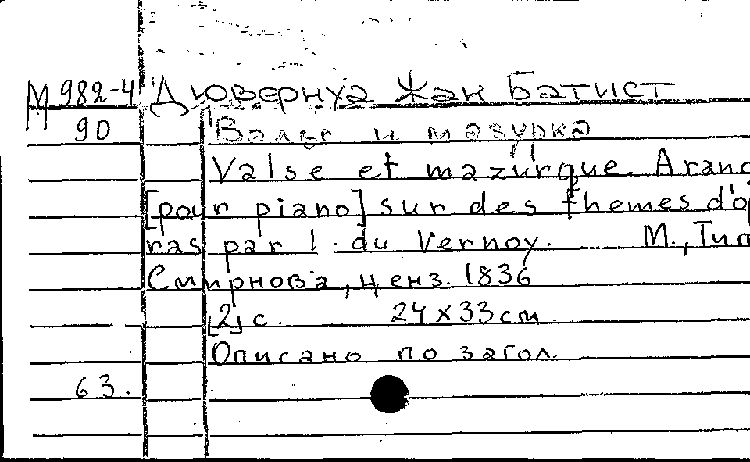 М 982-4 Дювернуа Жан Батист
90 Вальс и мазурка
Valse et mazurque. Arang
[pour piano] sur des themes d'op
ras par I. du Vernoy. М., Тип
Смирнова, ценз. 1836
[2] с 24х33 см
Описано по загол.
63.